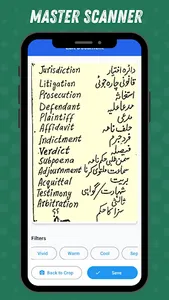 MASTER SCANNER
Jurisdiction دائرہ اختیار
Litigation قانونی چارہ جوئی
Prosecution استغاثہ
Defendant مدعا علیہ
Plaintiff مدعی
Affidavit حلف نامہ
Indictment فرد جرم
Verdict فیصلہ
Subpoena
Adjournment
Acquittal بریت
Testimony شہادت گواہی
Arbitration ثالثی
؟؟ سزا کا حکم
Filters
Vivid
Warm
Cool
Back to Crop
Save